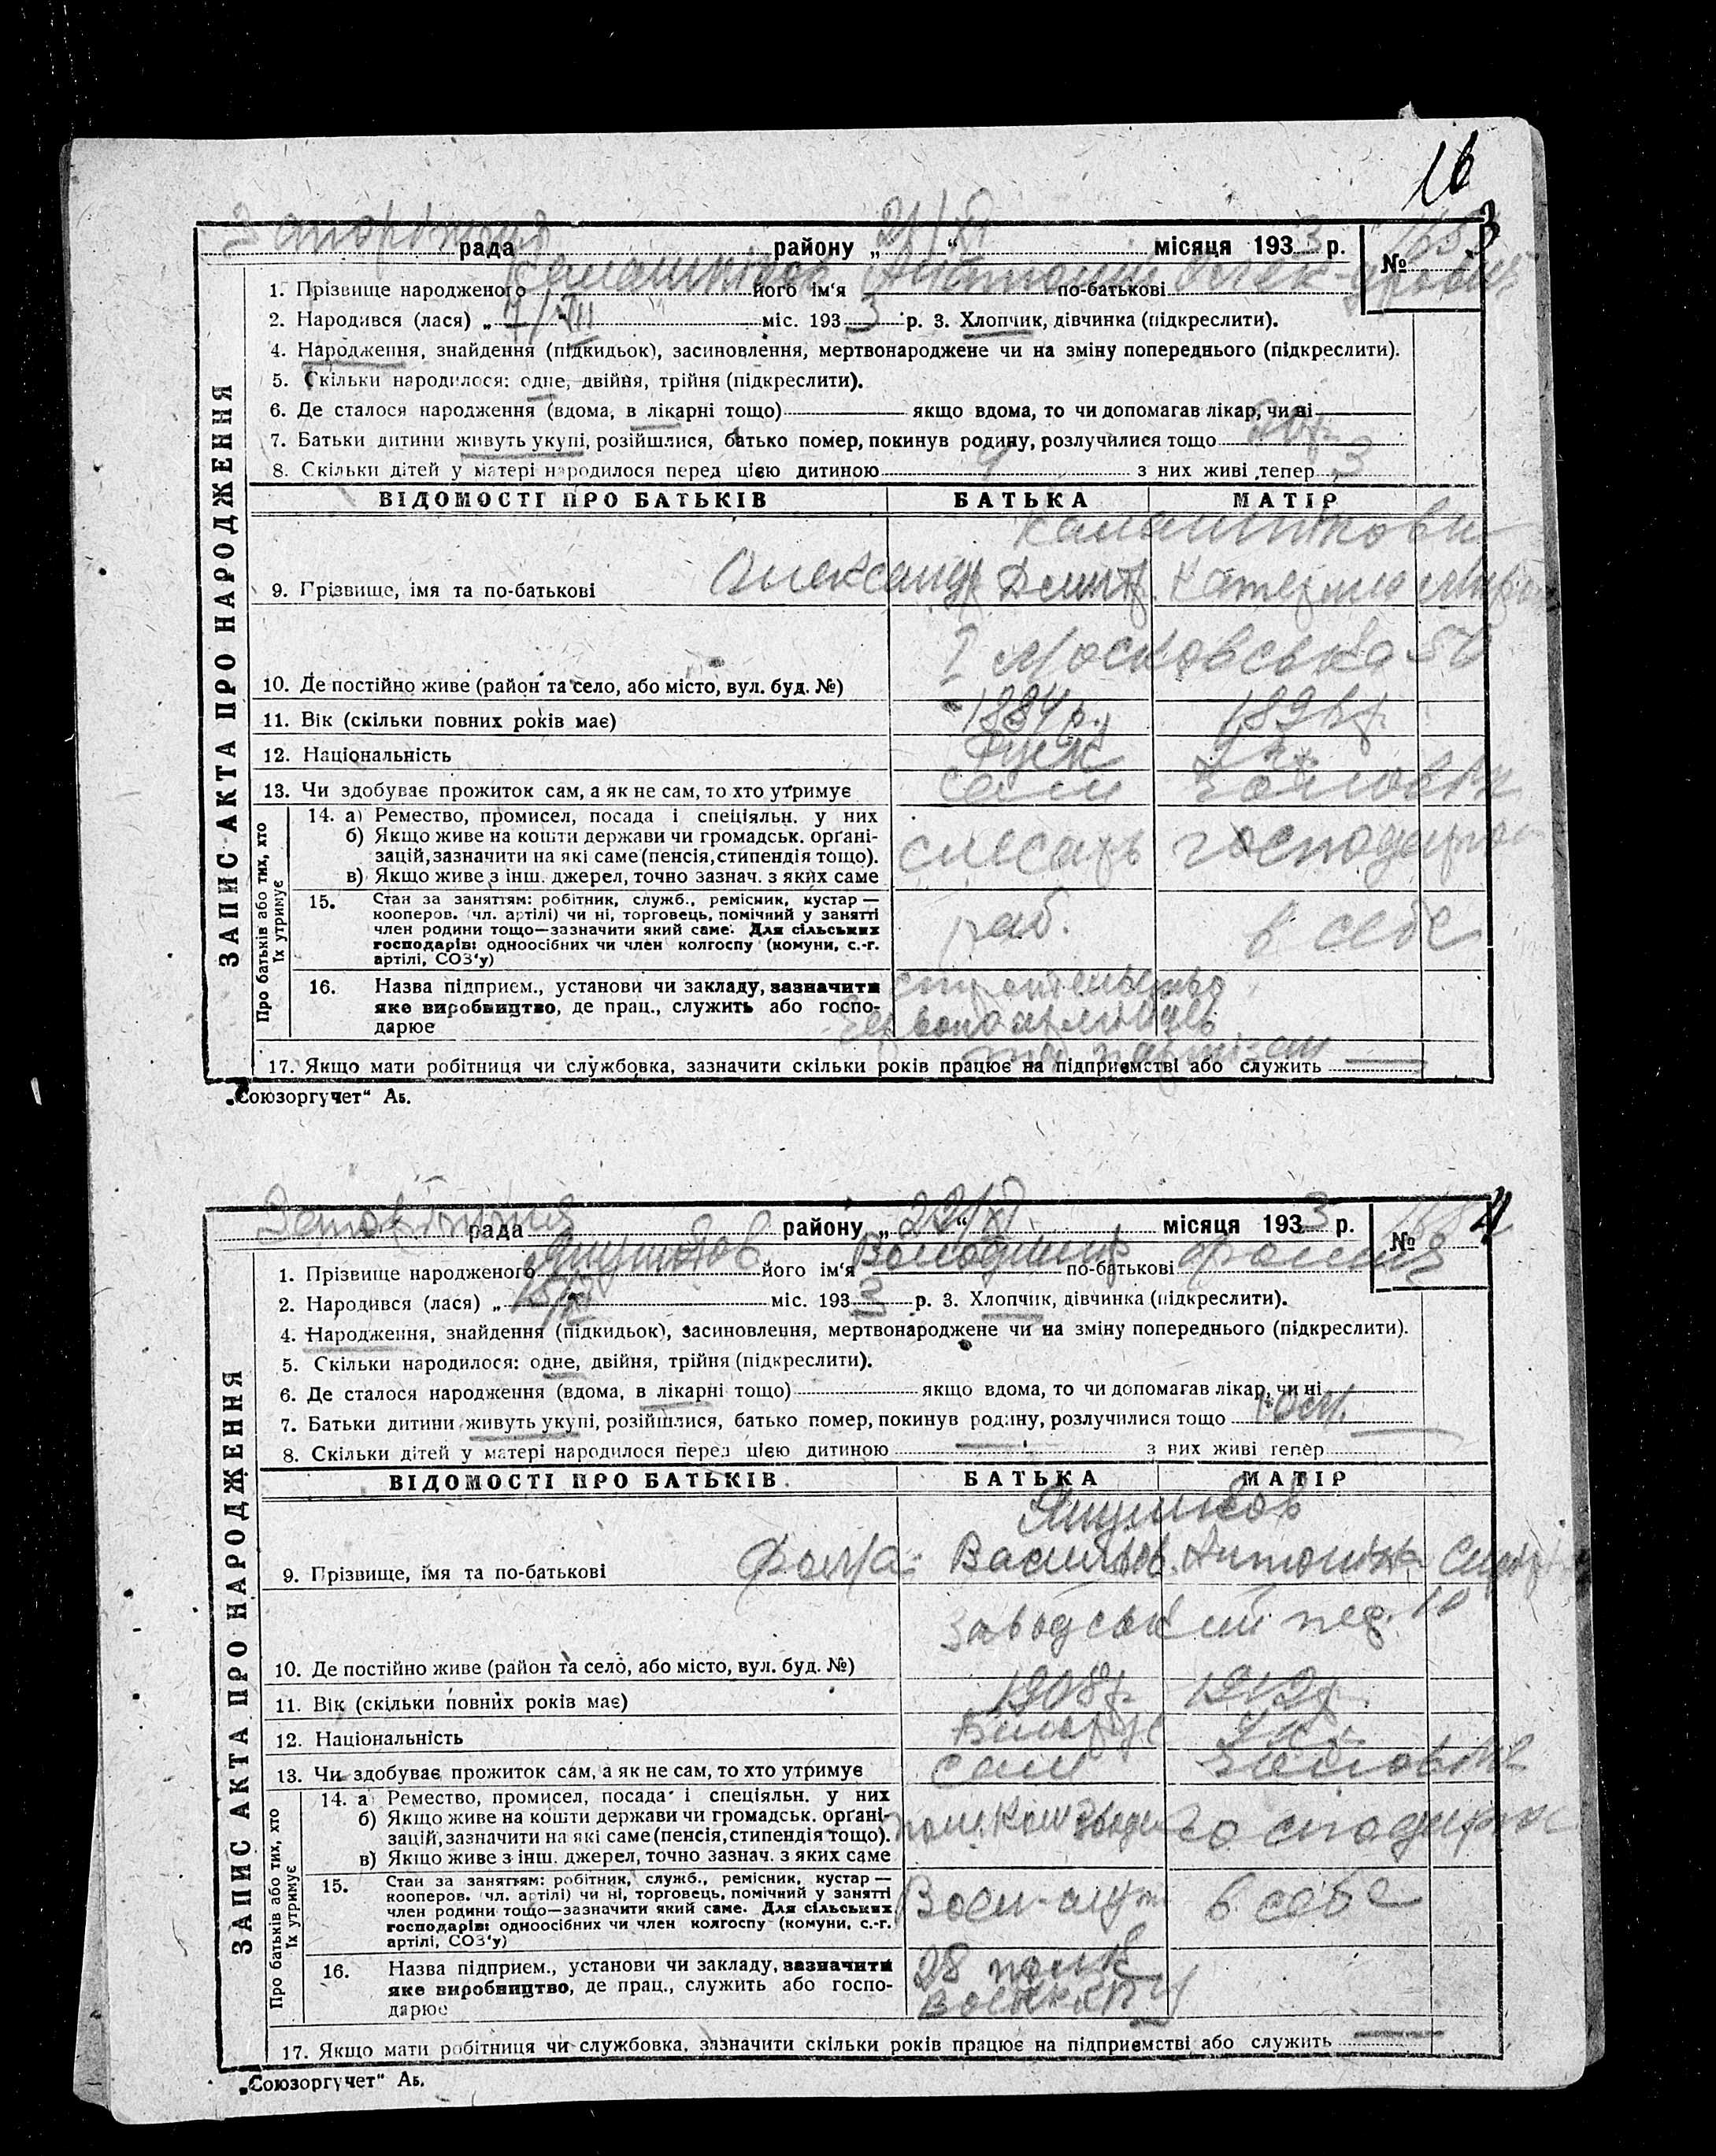 16
Запоріжжя рада району „ 21/XI “ місяця 1933 р. № 1683
1. Прізвище народженого Калашніков його ім‘я Анатолій по-батькові Олек-дрович
2. Народився (лася) „ 7/VIII міс. 1933 р. 3. Хлопчик, дівчинка (підкреслити).
4. Народження, знайдення (підкидьок), засиновлення, мертвонароджене чи на зміну попереднього (підкреслити).
5. Скільки народилося: одне, двійня, трійня (підкреслити).
6. Де сталося народження (вдома, в лікарні тощо) якщо вдома, то чи допомагав лікар, чи ні
7. Батьки дитини живуть укупі, розійшлися, батько помер, покинув родину, розлучилися тощо
8. Скільки дітей у матері народилося перед цією дитиною 4 з них живі тепер 3
ВІДОМОСТІ ПРО БАТЬКІВ БАТЬКА МАТІР
Калашнікови
9. Прізвище, імя та по-батькові Олександр Дмитр. Катерина
І Московська
10. Де постійно живе (район та село, або місто, вул. буд. №)
11. Вік (скільки повних років має) 1884 р. 189
12. Національність Руск Ук.
13. Чи здобуває прожиток сам, а як не сам, то хто утримує сам Чоловік
ЗАПИС АКТА ПРО НАРОДЖЕННЯ
Про батьків або тих, хто їх утримує
14. а) Ремество, промисел, посада і спеціяльн. у них
б) Якщо живе на кошти держави чи громадськ. орґані-
зацій, зазначити на які саме (пенсія, стипендія тощо). слесарь господарює
в) Якщо живе з інш. джерел, точно зазнач. з яких саме
15. Стан за заняттям: робітник, служб., ремісник, кустар —
кооперов. (чл. артілі) чи ні, торговець, помічний у занятті
член родини тощо—зазначити який саме. Для сільських раб. в себе
господарів: одноосібних чи член колгоспу (комуни, с.-г.
артілі, СОЗ‘у)
16. Назва підприєм., установи чи закладу, зазначити строительство
яке виробництво, де прац., служить або госпо-
дарює
17. Якщо мати робітниця чи службовка, зазначити скільки років працює на підприємстві або служить
„Союзоргучет“ Аб.
Запоріжжя рада району „ 22/XI “ місяця 1933 р. № 1684
1. Прізвище народженого його ім‘я Володимир по-батькові Фомич
2. Народився (лася) „ 15/XI міс. 1933 р. 3. Хлопчик, дівчинка (підкреслити).
4. Народження, знайдення (підкидьок), засиновлення, мертвонароджене чи на зміну попереднього (підкреслити).
5. Скільки народилося: одне, двійня, трійня (підкреслити).
6. Де сталося народження (вдома, в лікарні тощо) якщо вдома, то чи допомагав лікар, чи ні
7. Батьки дитини живуть укупі, розійшлися, батько помер, покинув родину, розлучилися тощо
8. Скільки дітей у матері народилося перед цією дитиною — з них живі тепер
ВІДОМОСТІ ПРО БАТЬКІВ БАТЬКА МАТІР
9. Прізвище, імя та по-батькові Фома Васильов. Антоніна
Заводський пер. 10
10. Де постійно живе (район та село, або місто, вул. буд. №)
11. Вік (скільки повних років має) 1908 р. 1912 р.
12. Національність Білорус Ук.
13. Чи здобуває прожиток сам, а як не сам, то хто утримує сам Чоловік
ЗАПИС АКТА ПРО НАРОДЖЕННЯ
Про батьків або тих, хто їх утримує
14. а) Ремество, промисел, посада і спеціяльн. у них
б) Якщо живе на кошти держави чи громадськ. орґані-
зацій, зазначити на які саме (пенсія, стипендія тощо). пом. Ком Взвода господарює
в) Якщо живе з інш. джерел, точно зазнач. з яких саме
15. Стан за заняттям: робітник, служб., ремісник, кустар —
кооперов. (чл. артілі) чи ні, торговець, помічний у занятті
член родини тощо—зазначити який саме. Для сільських Воен-служ. в себе
господарів: одноосібних чи член колгоспу (комуни, с.-г.
артілі, СОЗ‘у)
16. Назва підприєм., установи чи закладу, зазначити 28 полк
яке виробництво, де прац., служить або госпо-
дарює
17. Якщо мати робітниця чи службовка, зазначити скільки років працює на підприємстві або служить
„Союзоргучет“ Аб.